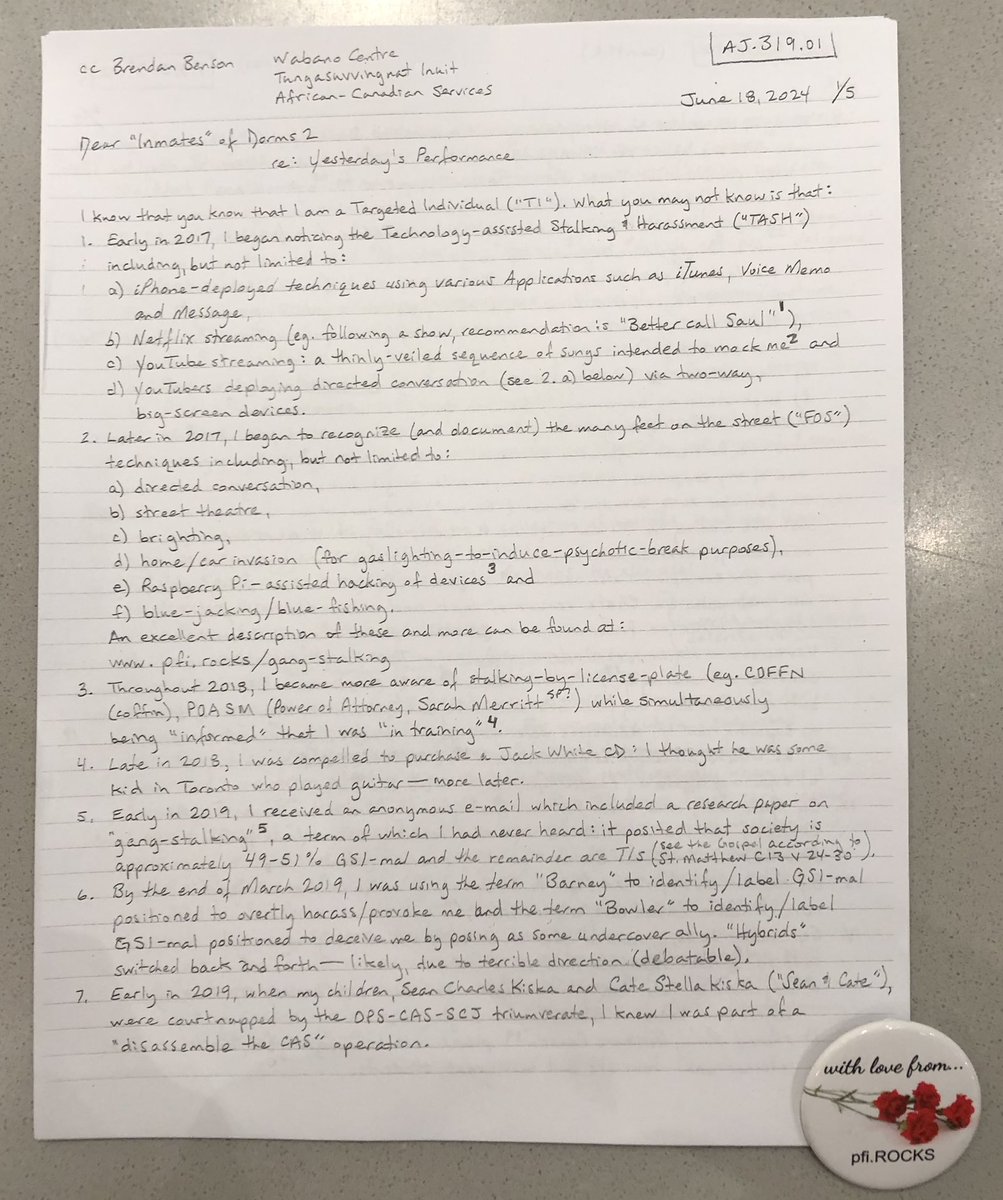 cc Brendan Benson
Wabano Centre
Tungasuvvingnat Inuit
African-Canadian Services
AJ.319.01
June 18, 2024 1/5
Dear "Inmates" of Dorms 2
re: Yesterday's Performance
I know that you know that I am a Targeted Individual ("TI"). What you may not know is that:
1. Early in 2017, I began noticing the Technology-assisted Stalking & Harassment ("TASH")
including, but not limited to:
a) iPhone-deployed techniques using various Applications such as iTunes, Voice Memo
and Message,
b) Netflix streaming (eg. following a show, recommendation is "Better call Saul"1),
c) YouTube streaming: a thinly-veiled sequence of songs intended to mock me2 and
d) YouTubers deploying directed conversation (see 2. a) below) via two-way,
big-screen devices.
2. Later in 2017, I began to recognize (and document) the many feet on the street ("FOS")
techniques including, but not limited to:
a) directed conversation,
b) street theatre,
c) brighting,
d) home/car invasion (for gaslighting-to-induce-psychotic-break purposes),
e) Raspberry Pi-assisted hacking of devices3 and
f) blue-jacking/blue-fishing.
An excellent description of these and more can be found at:
www.pfi.rocks/gang-stalking
3. Throughout 2018, I became more aware of stalking-by-license-plate (eg. COFFN
(coffin), POASM (Power of Attorney, Sarah Merritt sp?) while simultaneously
being "informed" that I was "in training"4.
4. Late in 2018, I was compelled to purchase a Jack White CD: I thought he was some
kid in Toronto who played guitar — more later.
5. Early in 2019, I received an anonymous e-mail which included a research paper on
"gang-stalking"5, a term of which I had never heard: it posited that society is
approximately 49-51% GSI-mal and the remainder are TIs (see the Gospel according to
St. Matthew C13 V 24-30).
6. By the end of March 2019, I was using the term "Barney" to identify/label GSI-mal
positioned to overtly harass/provoke me and the term "Bowler" to identify/label
GSI-mal positioned to deceive me by posing as some undercover ally. "Hybrids"
switched back and forth — likely, due to terrible direction (debatable).
7. Early in 2019, when my children, Sean Charles Kiska and Cate Stella Kiska ("Sean & Cate"),
were courtnapped by the OPS-CAS-SCJ triumverate, I knew I was part of a
"disassemble the CAS" operation.
with love from...
pfi.ROCKS